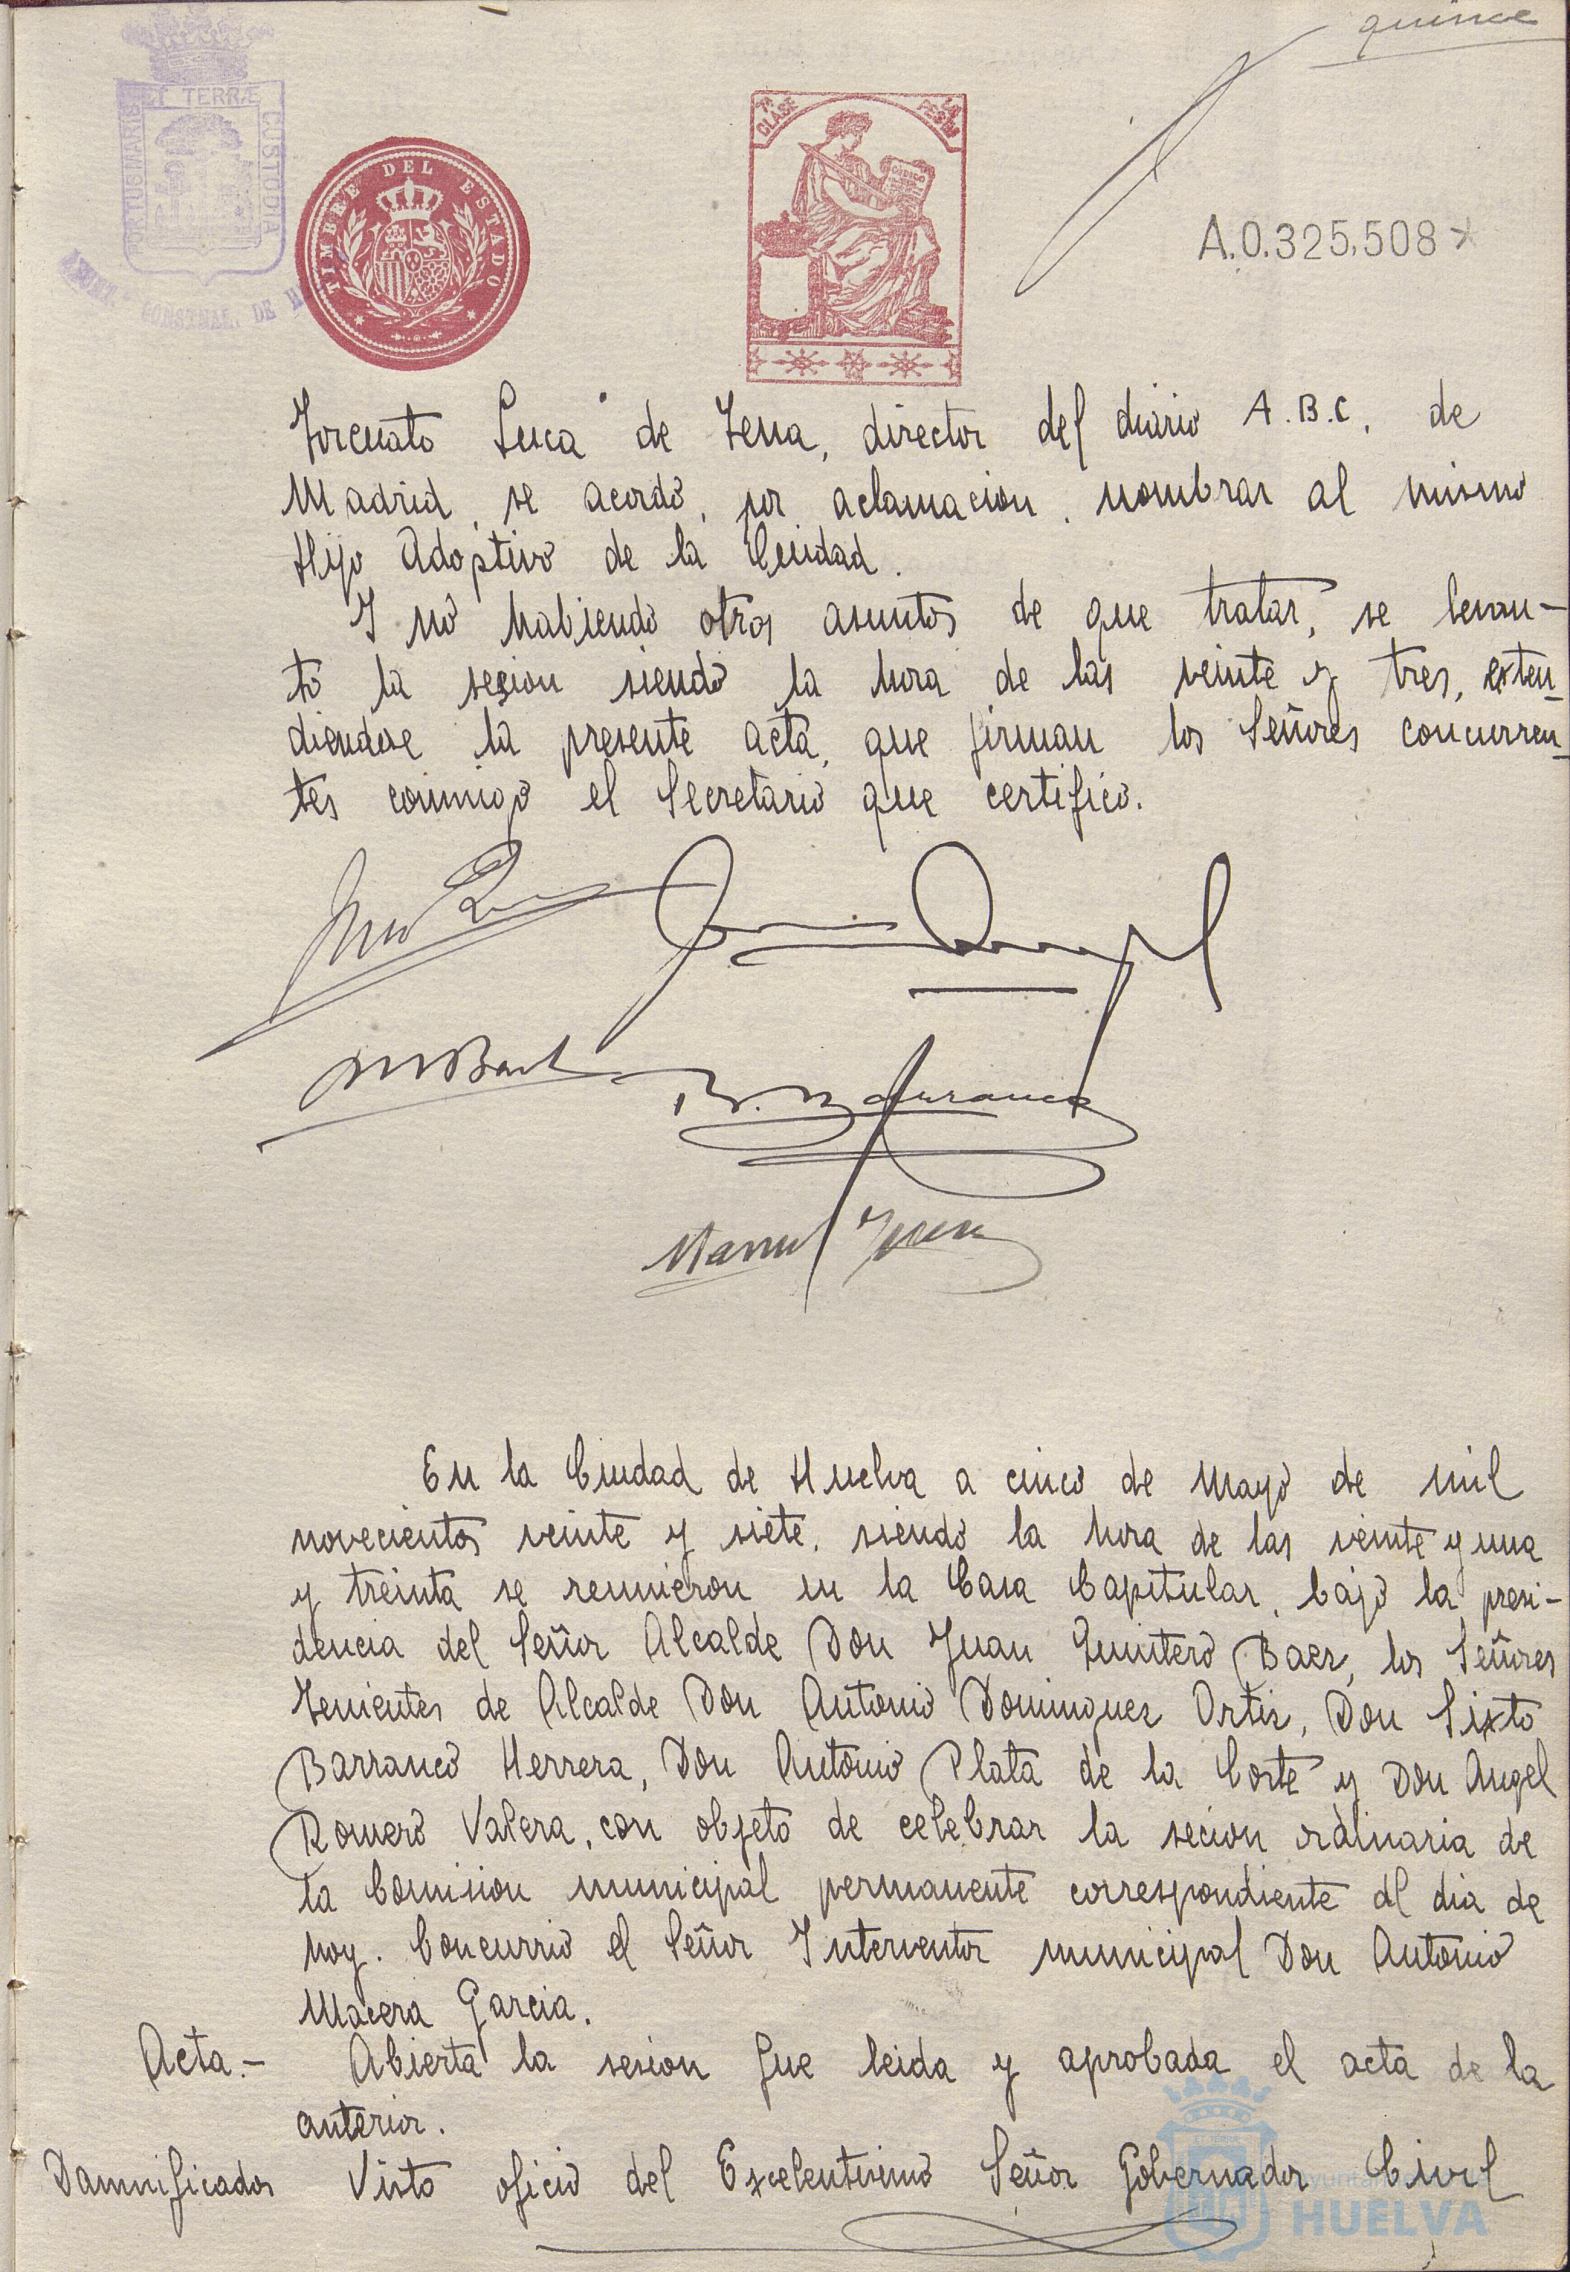 quince
ET TERRÆ
PORTUS MARIS
CUSTODIA
CONSTNAL. DE H
TIMBRE DEL ESTADO
7ª CLASE
PESETAS
CODIGO
A.0.325,508*
Torcuato Luca de Tena, director del diario A.B.C. de
Madrid, se acordó, por aclamacion, nombrar al mismo
Hijo Adoptivo de la Ciudad.
Y no habiendo otros asuntos de que tratar, se levan-
tó la sesion siendo la hora de las veinte y tres, exten-
diendose la presente acta, que firman los Señores concurren-
tes conmigo el Secretario que certifico.
Manuel
En la Ciudad de Huelva a cinco de Mayo de mil
novecientos veinte y siete, siendo la hora de las veinte y una
y treinta se reunieron en la Casa Capitular, bajo la presi-
dencia del Señor Alcalde Don Juan Quintero Baez, los Señores
Tenientes de Alcalde Don Antonio Dominguez Ortiz, Don Sixto
Barranco Herrera, Don Antonio Plata de la Corte y Don Angel
Romero Valera, con objeto de celebrar la secion ordinaria de
la Comision municipal permanente correspondiente al dia de
hoy. Concurrió el Señor Interventor municipal Don Antonio
Macera Garcia.
Acta.- Abierta la sesion fue leida y aprobada el acta de la
anterior.
Damnificados Visto oficio del Excelentisimo Señor Gobernador Civil
HUELVA